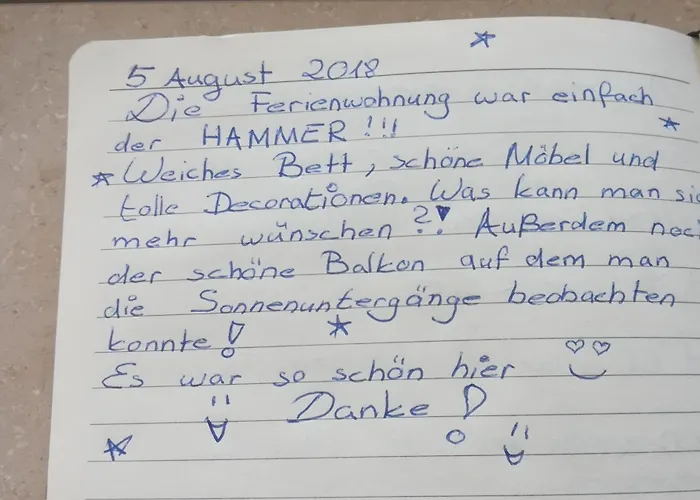 5 August 2018
Die Ferienwohnung war einfach
der HAMMER!!!
Weiches Bett, schöne Möbel und
tolle Decorationen. Was kann man sic
mehr wünschen?! Außerdem noc
der schöne Balkon auf dem man
die Sonnenuntergänge beobachten
konnte!
Es war so schön hier
Danke!